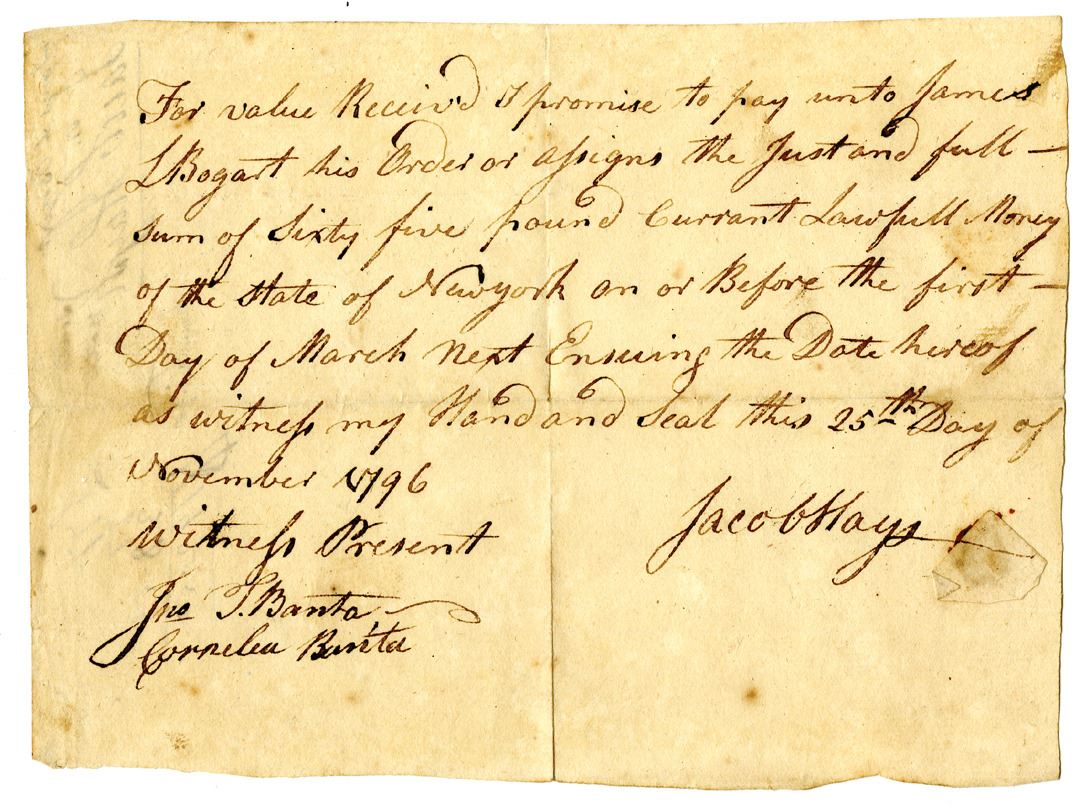 For value Receivd I promise to pay unto James
L Bogart his Order or assigns the Just and full —
sum of Sixty five pound Currant Lawfull Money
of the state of Newyork on or Before the first —
Day of March Next Ensuing the Date hereof
as witness my Hand and Seal this 25th Day of
November 1796
Jacob Hays
Witness Present
Jno T. Banta
Cornelea Banta